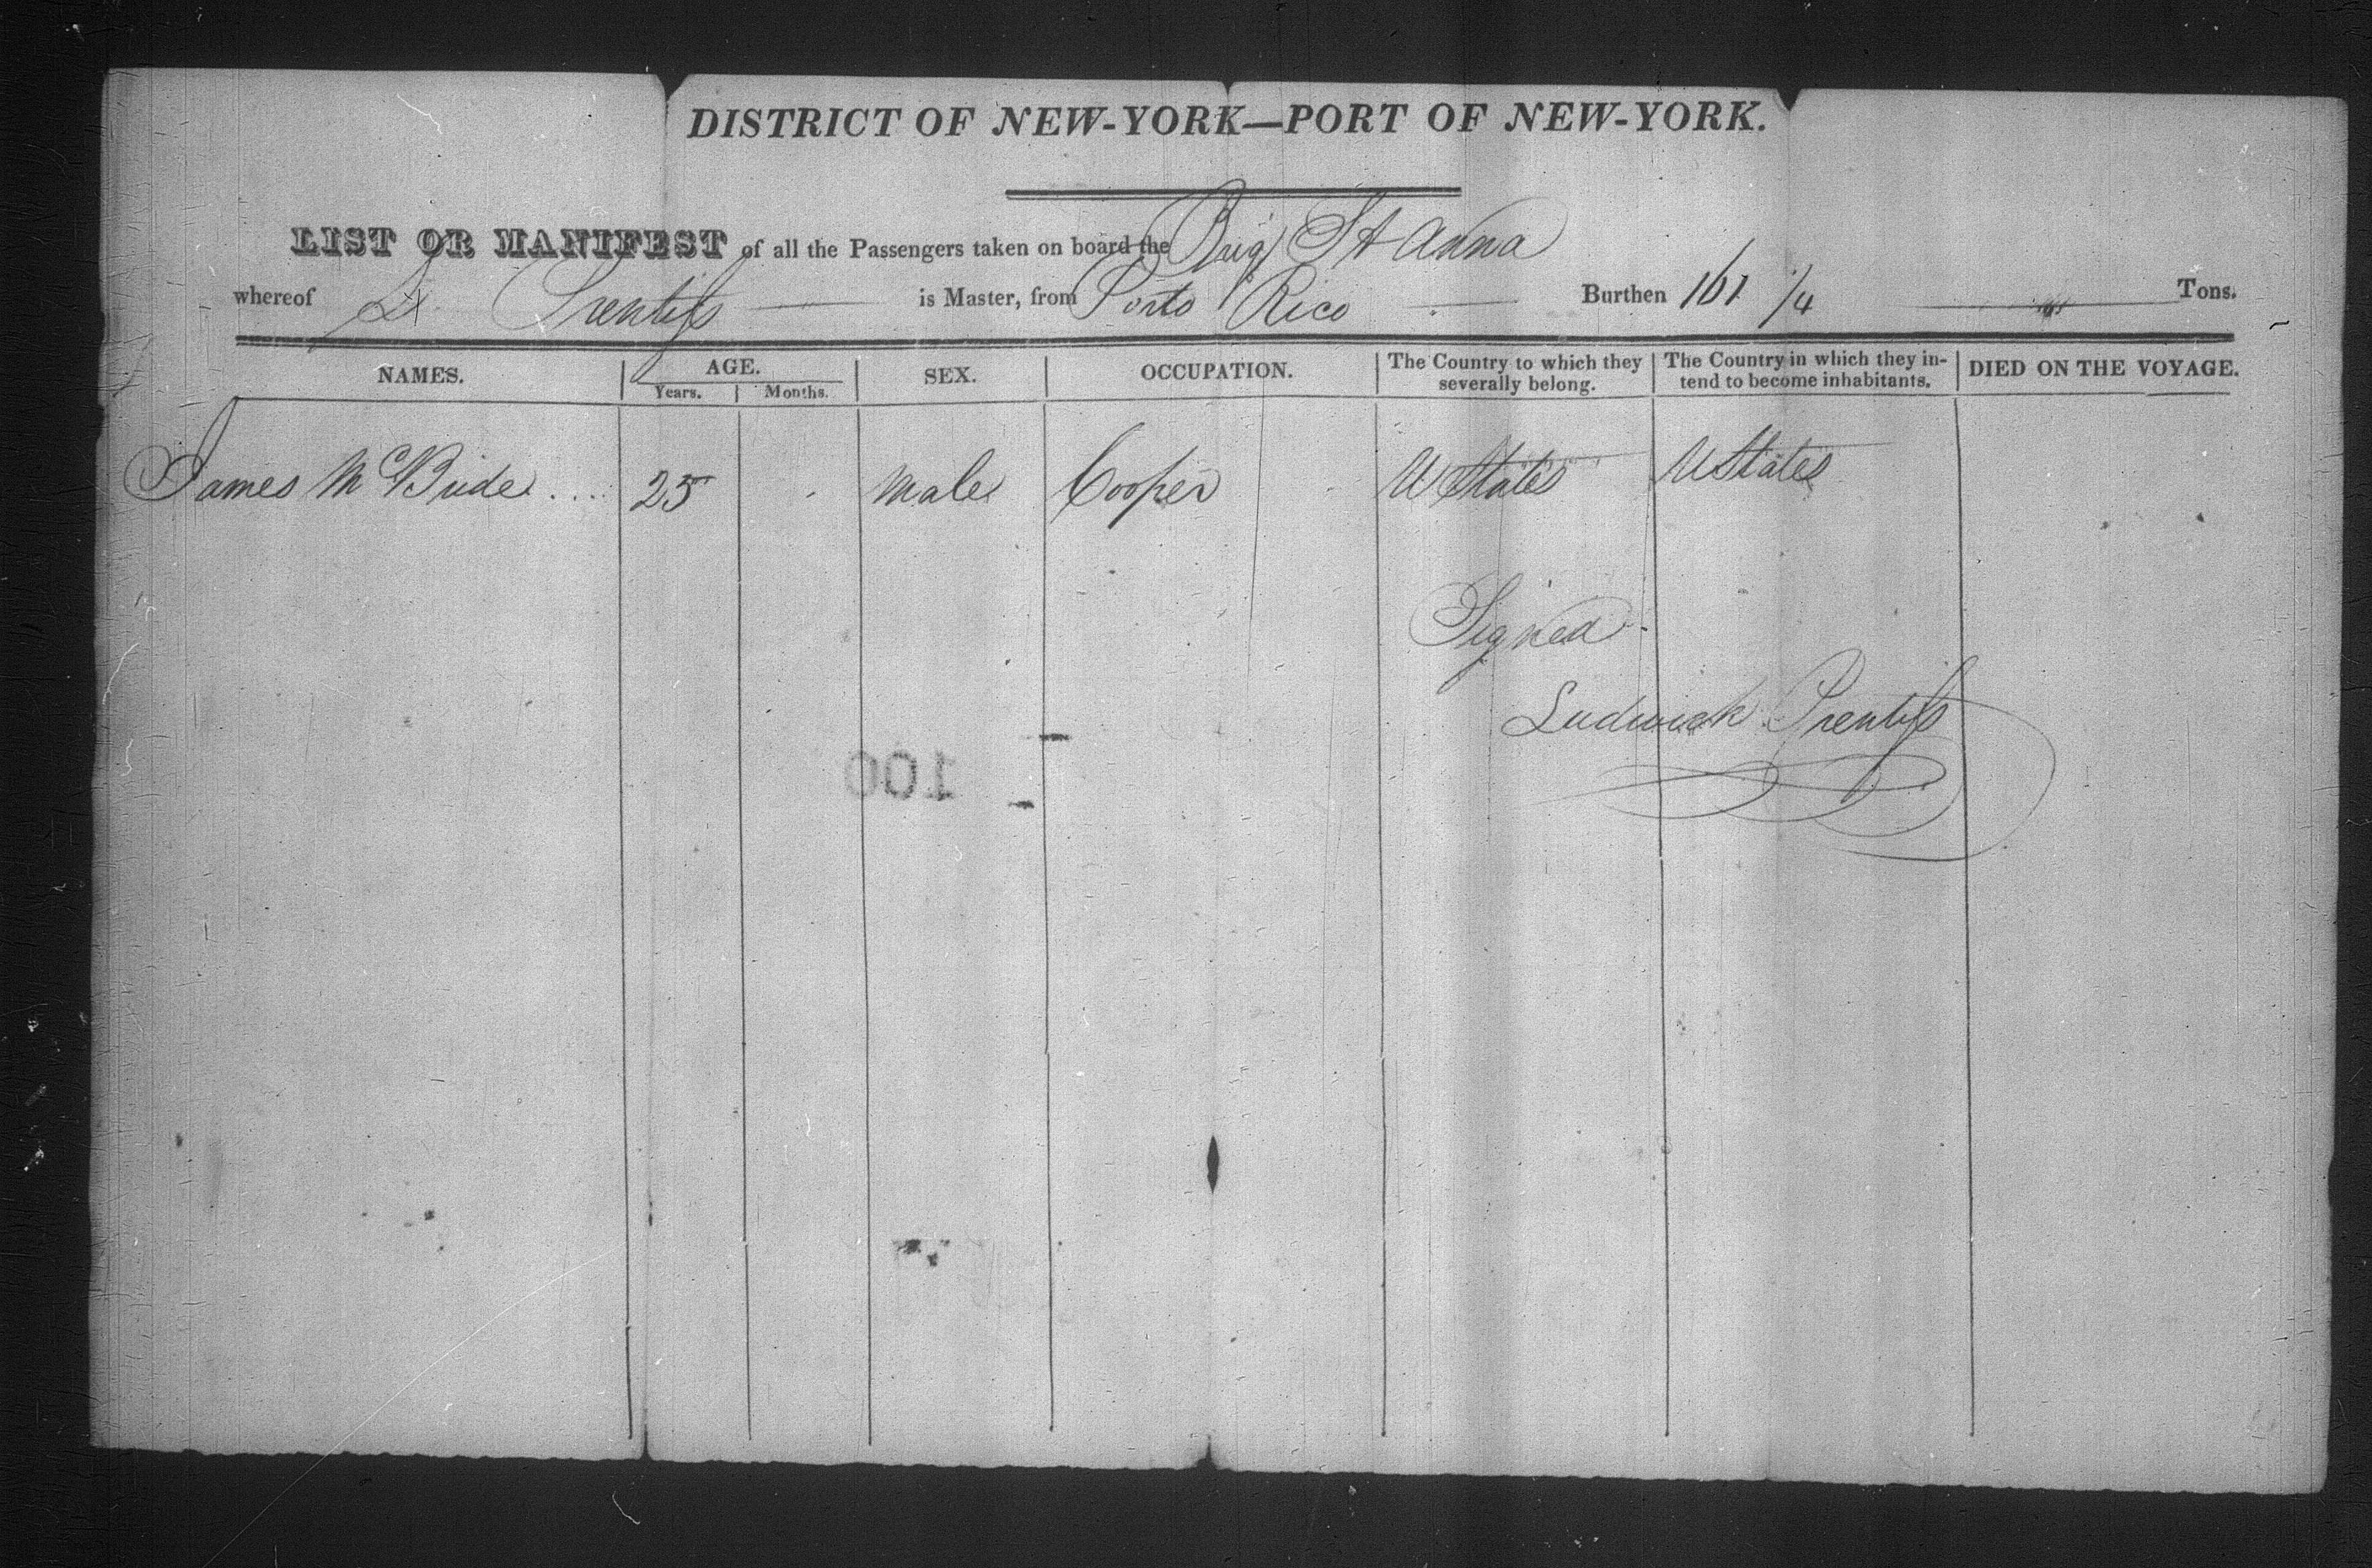 DISTRICT OF NEW-YORK—PORT OF NEW-YORK.
LIST OR MANIFEST of all the Passengers taken on board the Brig St Anna
whereof L. Prentifs is Master, from Porto Rico Burthen 161 /4 Tons.
NAMES. AGE. SEX. OCCUPATION. The Country to which they severally belong. The Country in which they in-tend to become inhabitants. DIED ON THE VOYAGE.
Years. Months.
James McBride .... 25 male Cooper U States U States
Signed
Ludwick Prentifs
100